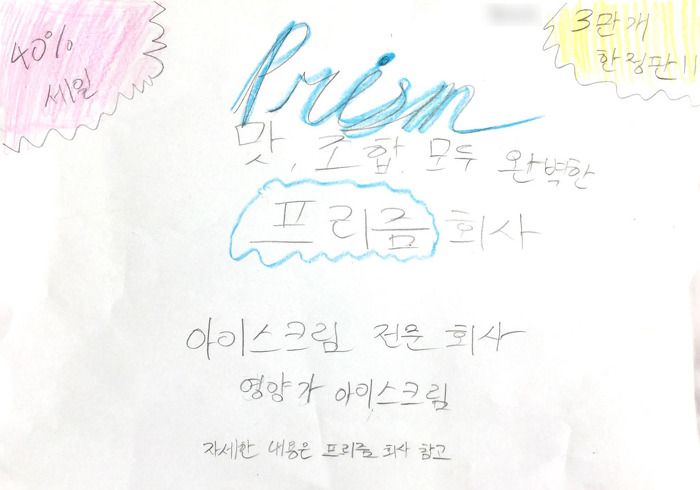 40%
세일
3만개
한정판!!
Prism
맛, 조합, 모두 완벽한
프리즘 회사
아이스크림 전문 회사
영양가 아이스크림
자세한 내용은 프리즘 회사 참고